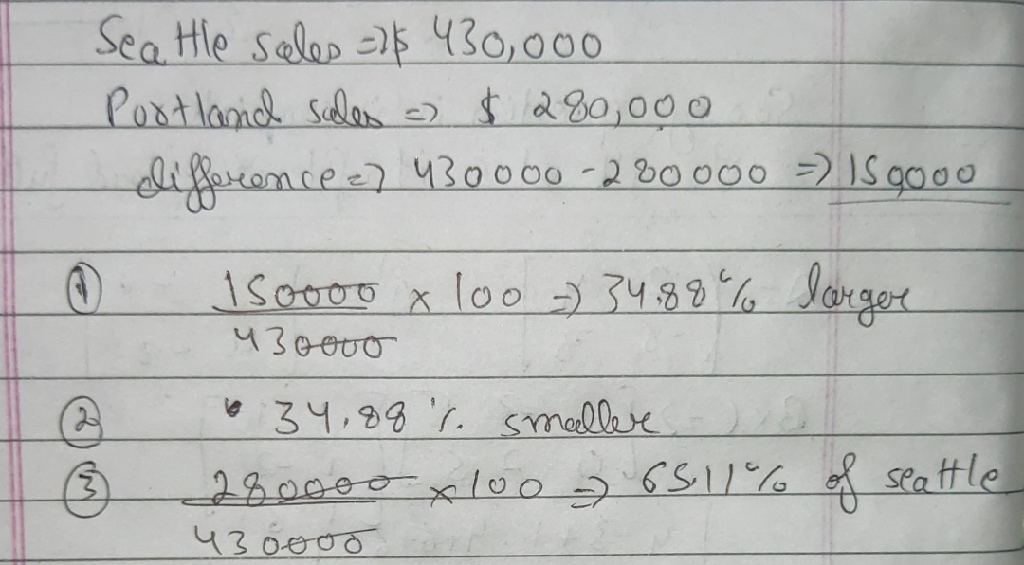 Seattle sales => $ 430,000
Portland sales => $ 280,000
difference => 430000 - 280000 => 150000
① 150000 × 100 => 34.88% larger
430000
② 34.88 %. smaller
③ 280000 × 100 => 65.11% of seattle
430000